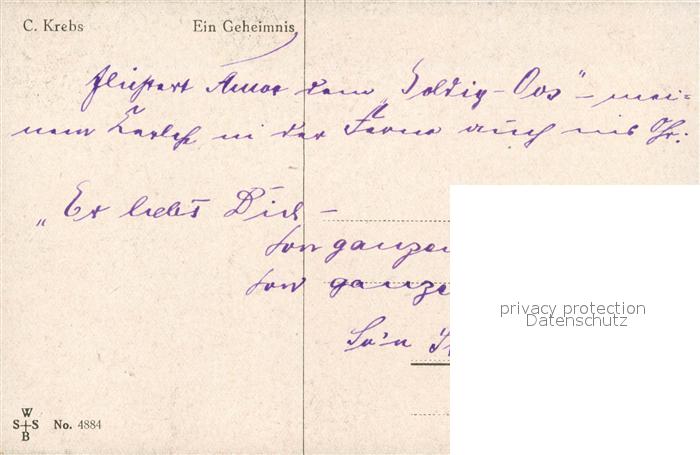 C. Krebs
Ein Geheimnis
flüstert Amor dem "Goldig-
in der Ferne auch ins
"Er liebt Dich –
von ganzen
von ganze
privacy protection
Datenschutz
W
S+S
B
No. 4884